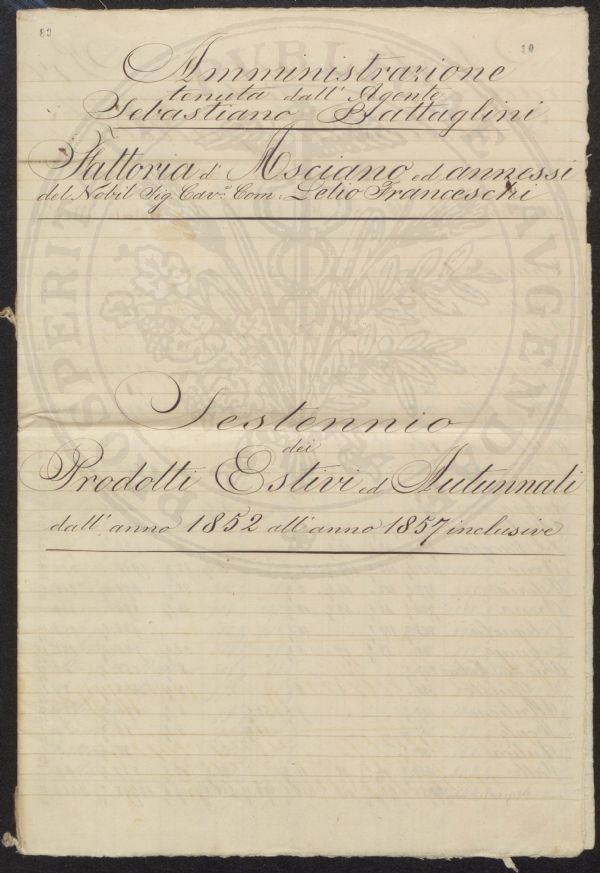 82
10
Amministrazione
tenuta dall' Agente
Sebastiano Battaglini
Fattoria d' Asciano ed annessi
del Nobil Sig. Cav.e Com: Lelio Franceschi
Sestennio
dei
Prodotti Estivi ed Autunnali
dall' anno 1852 all' anno 1857 inclusive
PROSPERITATI PUBLICAE AUGENDAE